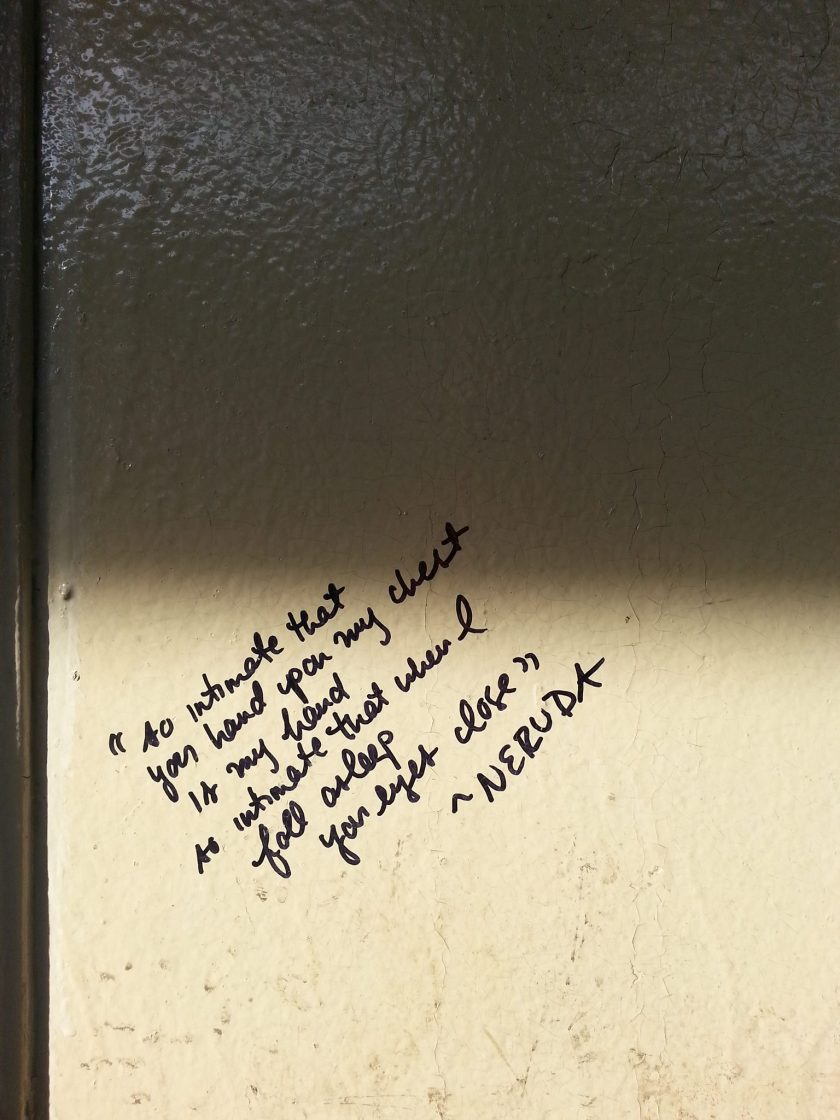 "so intimate that
your hand upon my chest
is my hand
so intimate that when I
fall asleep
your eyes close"
~ NERUDA